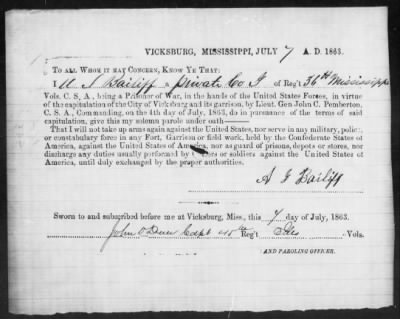 VICKSBURG, MISSISSIPPI, JULY 7 A. D. 1863.
TO ALL WHOM IT MAY CONCERN, KNOW YE THAT:
I A J Bailiff a Private Co I of Reg't 36th Mississippi
Vols. C. S. A., being a Prisoner of War, in the hands of the United States Forces, in virtue
of the capitulation of the City of Vicksburg and its garrison, by Lieut. Gen John C. Pemberton,
C. S. A., Commanding, on the 4th day of July, 1863, do in pursuance of the terms of said
capitulation, give this my solemn parole under oath
That I will not take up arms again against the United States, nor serve in any military, police,
or constabulary force in any Fort, Garrison or field work, held by the Confederate States of
America, against the United States of America, nor as guard of prisons, depots or stores, nor
discharge any duties usually performed by or soldiers against the United States of
America, until duly exchanged by the proper authorities.
A J Bailiff
Sworn to and subscribed before me at Vicksburg, Miss., this 7 day of July, 1863.
John Capt 45th Reg't Ills Vols.
AND PAROLING OFFICER.